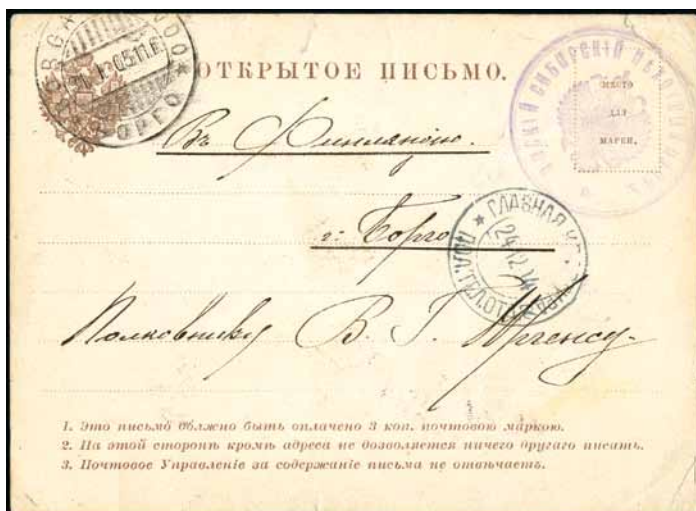 BORGÅ
BORGO
ОТКРЫТОЕ ПИСЬМО.
СИБИРСКІЙ
МѢСТО
ДЛЯ
МАРКИ.
Въ Финляндію.
г. Борго
ГЛАВНАЯ
24 12
Полковнику В. Г. Иргенсу.
1. Это письмо должно быть оплачено 3 коп. почтовою маркою.
2. На этой сторонѣ кромѣ адреса не дозволяется ничего другаго писать.
3. Почтовое Управленіе за содержаніе письма не отвѣчаетъ.